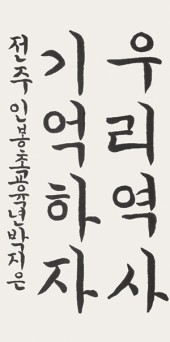 우리역사
기억하자
전주인봉초교육년박지은